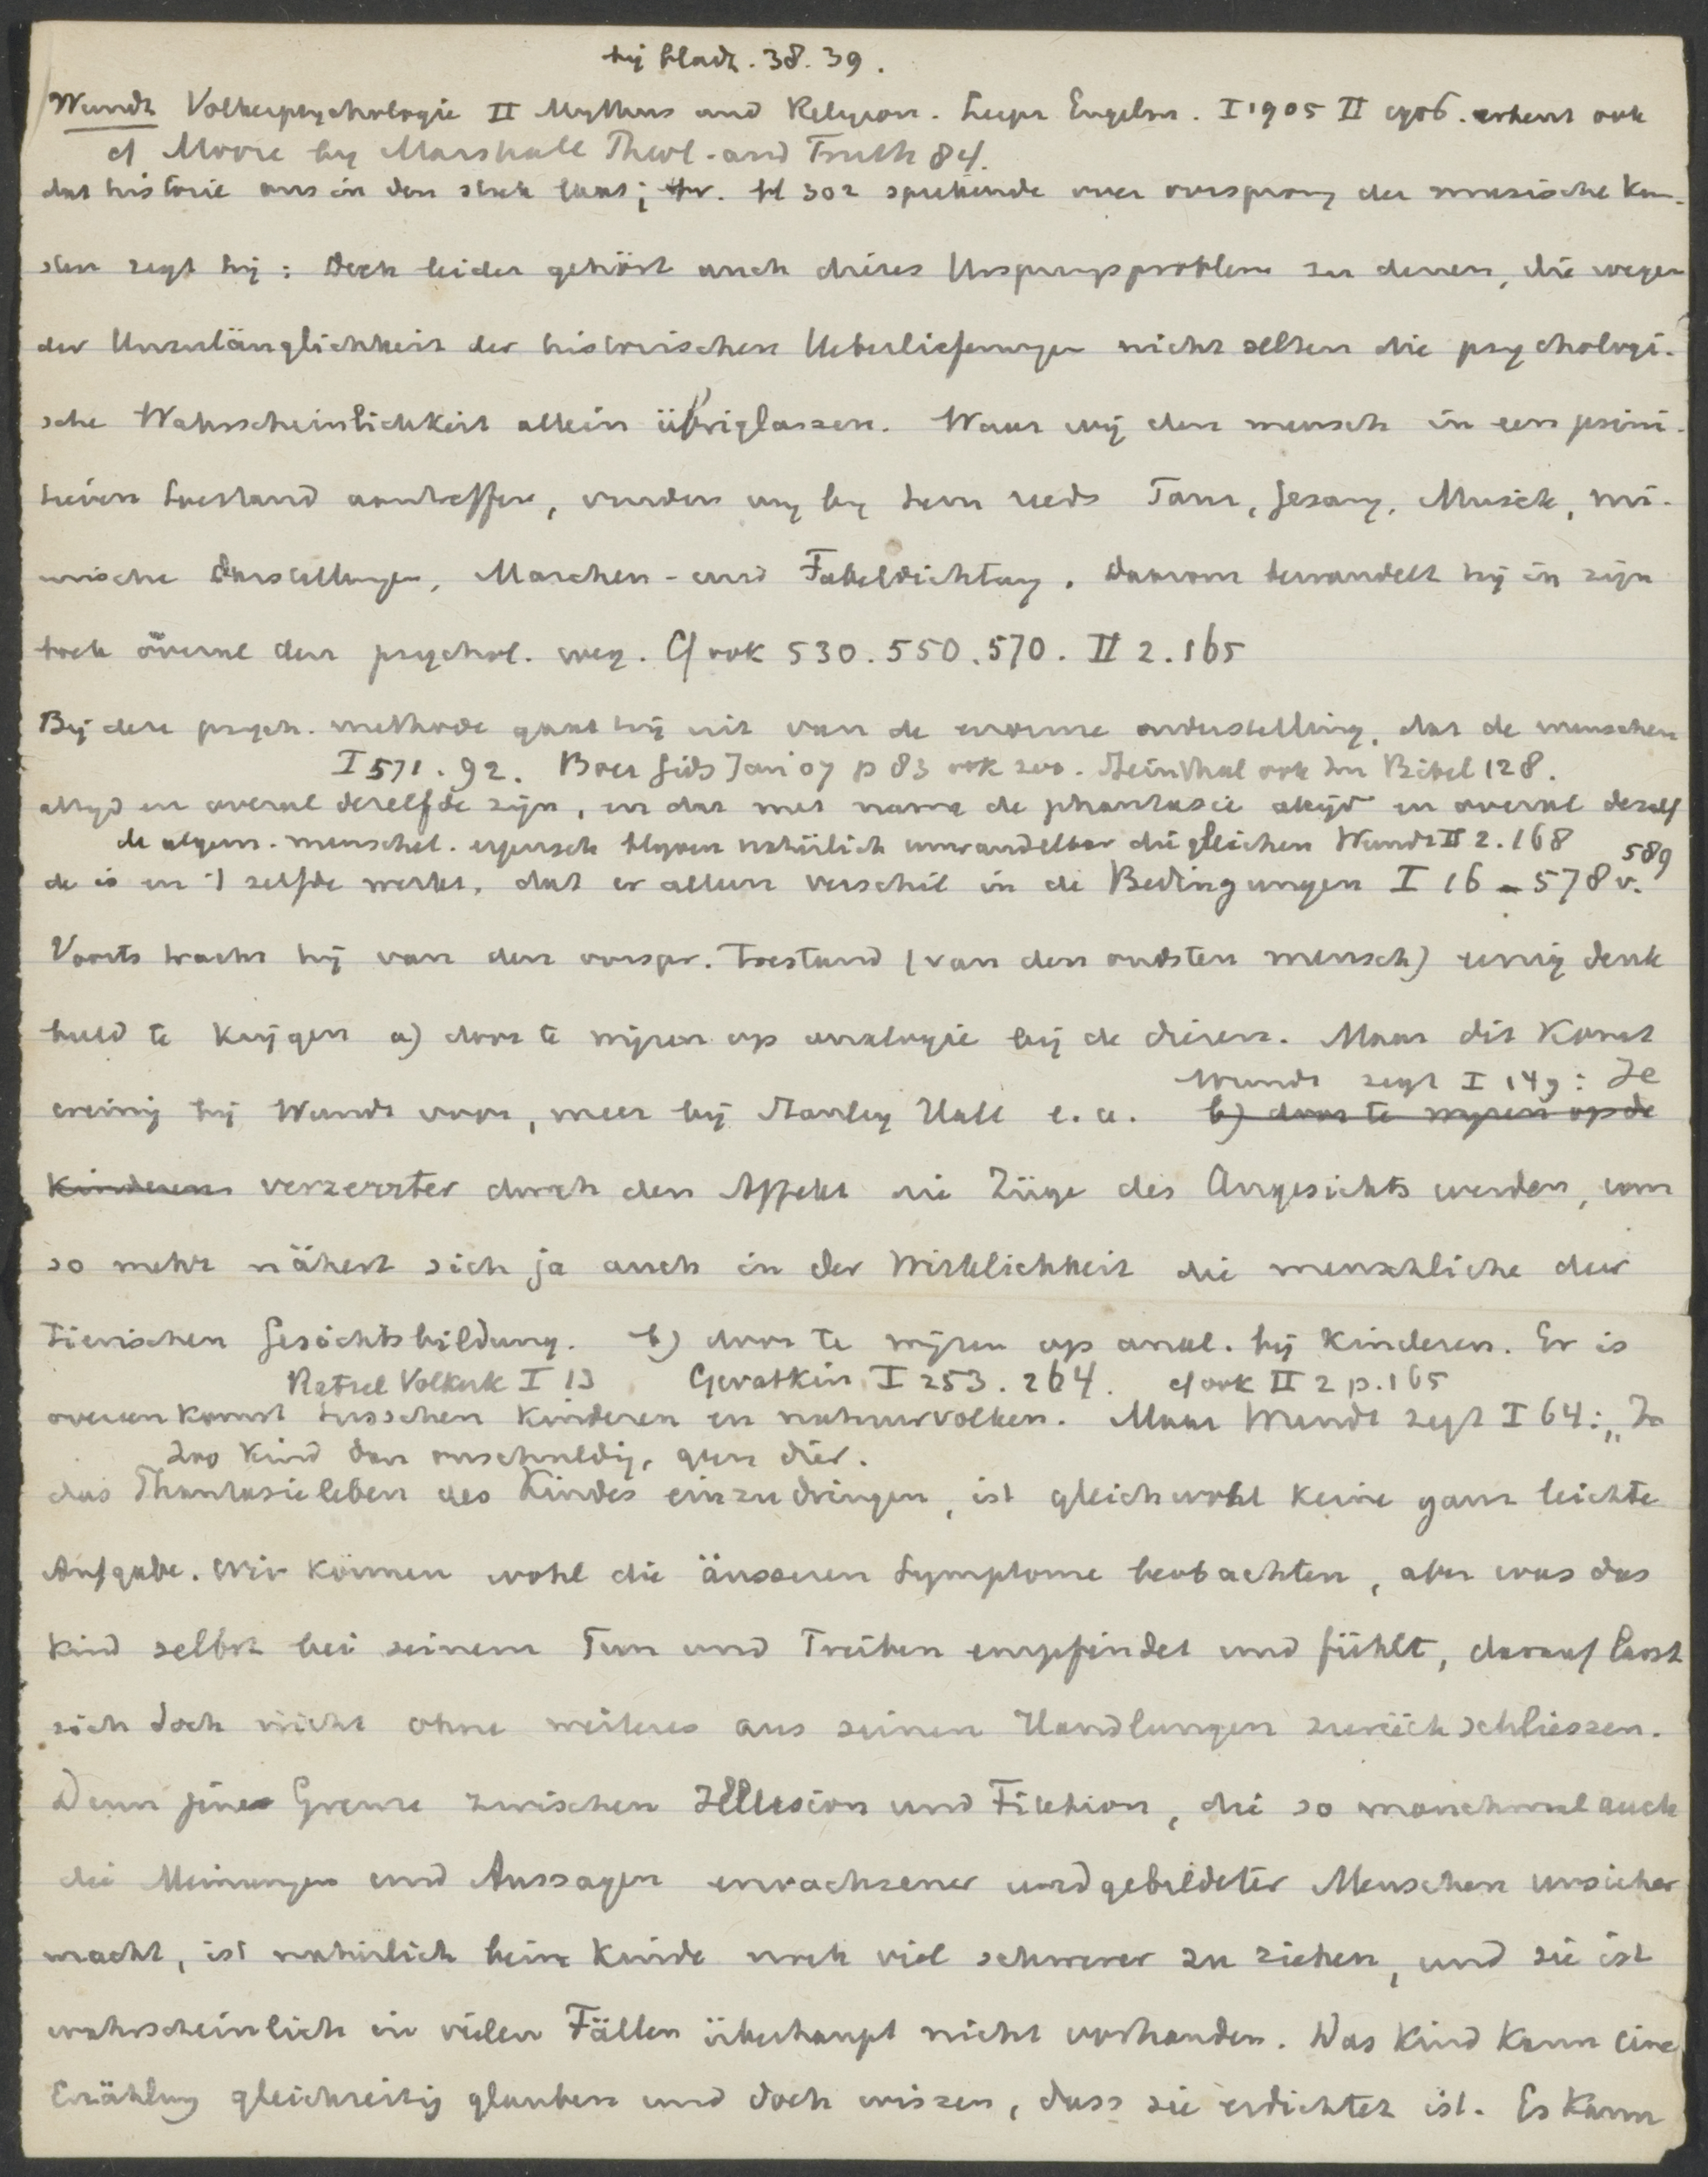 bij bladz. 38. 39.
Wundt Volkerpsychologie II Mythus und Religion. Leipz Engelm. I 1905 II 1906. erkent ook
cf Moore by Marshall Theol. and Truth 84.
dat historie ons in den steek laat; bl 302 sprekende over oorsprong der musische kun-
sten zegt hij: Doch leider gehört auch dieses Ursprungsproblem zu denen, die wegen
der Unzulänglichkeit der historischen Ueberlieferungen nicht selten die psychologi-
sche Wahrscheinlichkeit allein übriglassen. Waar wij den mensch in een primi-
tieven toestand aantreffen, vinden wij bij hem reeds Tanz, Gesang, Musik, mi-
mische Darstellungen, Marchen- und Fabeldichtung. Daarom bewandelt hij in zijn
boek overal den psychol. weg. Cf ook 530. 550. 570. II 2. 165
Bij deze psych. methode gaat hij uit van de enorme onderstelling, dat de menschen
I 571. 92. Boer Gids Jan 07 p 83 ook 200. Steinthal ook Zu Bibel 128.
altijd en overal dezelfde zijn, en dat met name de phantasie altijd en overal dezelf
de algem. menschel. eigensch blijven natürlich unwandelbar die gleichen Wundt II 2. 168
de is en 't zelfde werkt, dat er alleen verschil in de Bedingungen I 16 - 578 v. 589
Voorts tracht hij van den oorspr. toestand (van den oudsten mensch) eenig denk
beeld te krijgen a) door te wijzen op analogie bij de dieren. Maar dit komt
Wundt zegt I 149: Je
weinig bij Wundt voor, meer bij Stanley Hall e.a. b) door te wijzen op de
kinderen verzerrter durch den Affekt die Züge des Angesichts werden, um
so mehr nähert sich ja auch in der Wirklichkeit die menschliche der
tierischen Gesichtsbildung. b) door te wijzen op anal. bij kinderen. Er is
Ratzel Volkerk I 13 I 253. 264. cf ook II 2 p. 165
overeenkomst tusschen kinderen en natuurvolken. Maar Wundt zegt I 64: „In
Zoo kind dan onschuldig, geen dier.
das Phantasieleben des Kindes einzudringen, ist gleichwohl keine ganz leichte
Aufgabe. Wir können wohl die äusseren Symptome beobachten, aber was das
Kind selbst bei seinem Tun und Treiben empfindet und fühlt, darauf lasst
sich doch nicht ohne weiteres aus seinen Handlungen zurückschliessen.
Denn jene Grenze zwischen Illusion und Fiktion, die so manchmal auch
die Meinungen und Aussagen erwachsener und gebildeter Menschen unsicher
macht, ist natürlich beim Kinde noch viel schwerer zu ziehen, und sie ist
wahrscheinlich in vielen Fällen überhaupt nicht vorhanden. Das Kind kann eine
Erzählung gleichzeitig glauben und doch wissen, dass sie erdichtet ist. Es kann